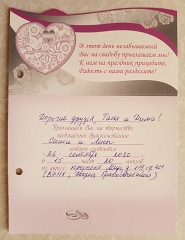 В этот день незабываемый
Вас на свадьбу приглашаем мы!
К нам на праздник приходите,
Радость с нами разделите!
Дорогие друзья, Таня и Дима!
Приглашаем Вас на торжество,
посвященное бракосочетанию
Саши и
которое состоится
26 сентября 2020
в 15 часов 20 минут
по адресу:
(ВДНХ, Дворец Бракосочетания)